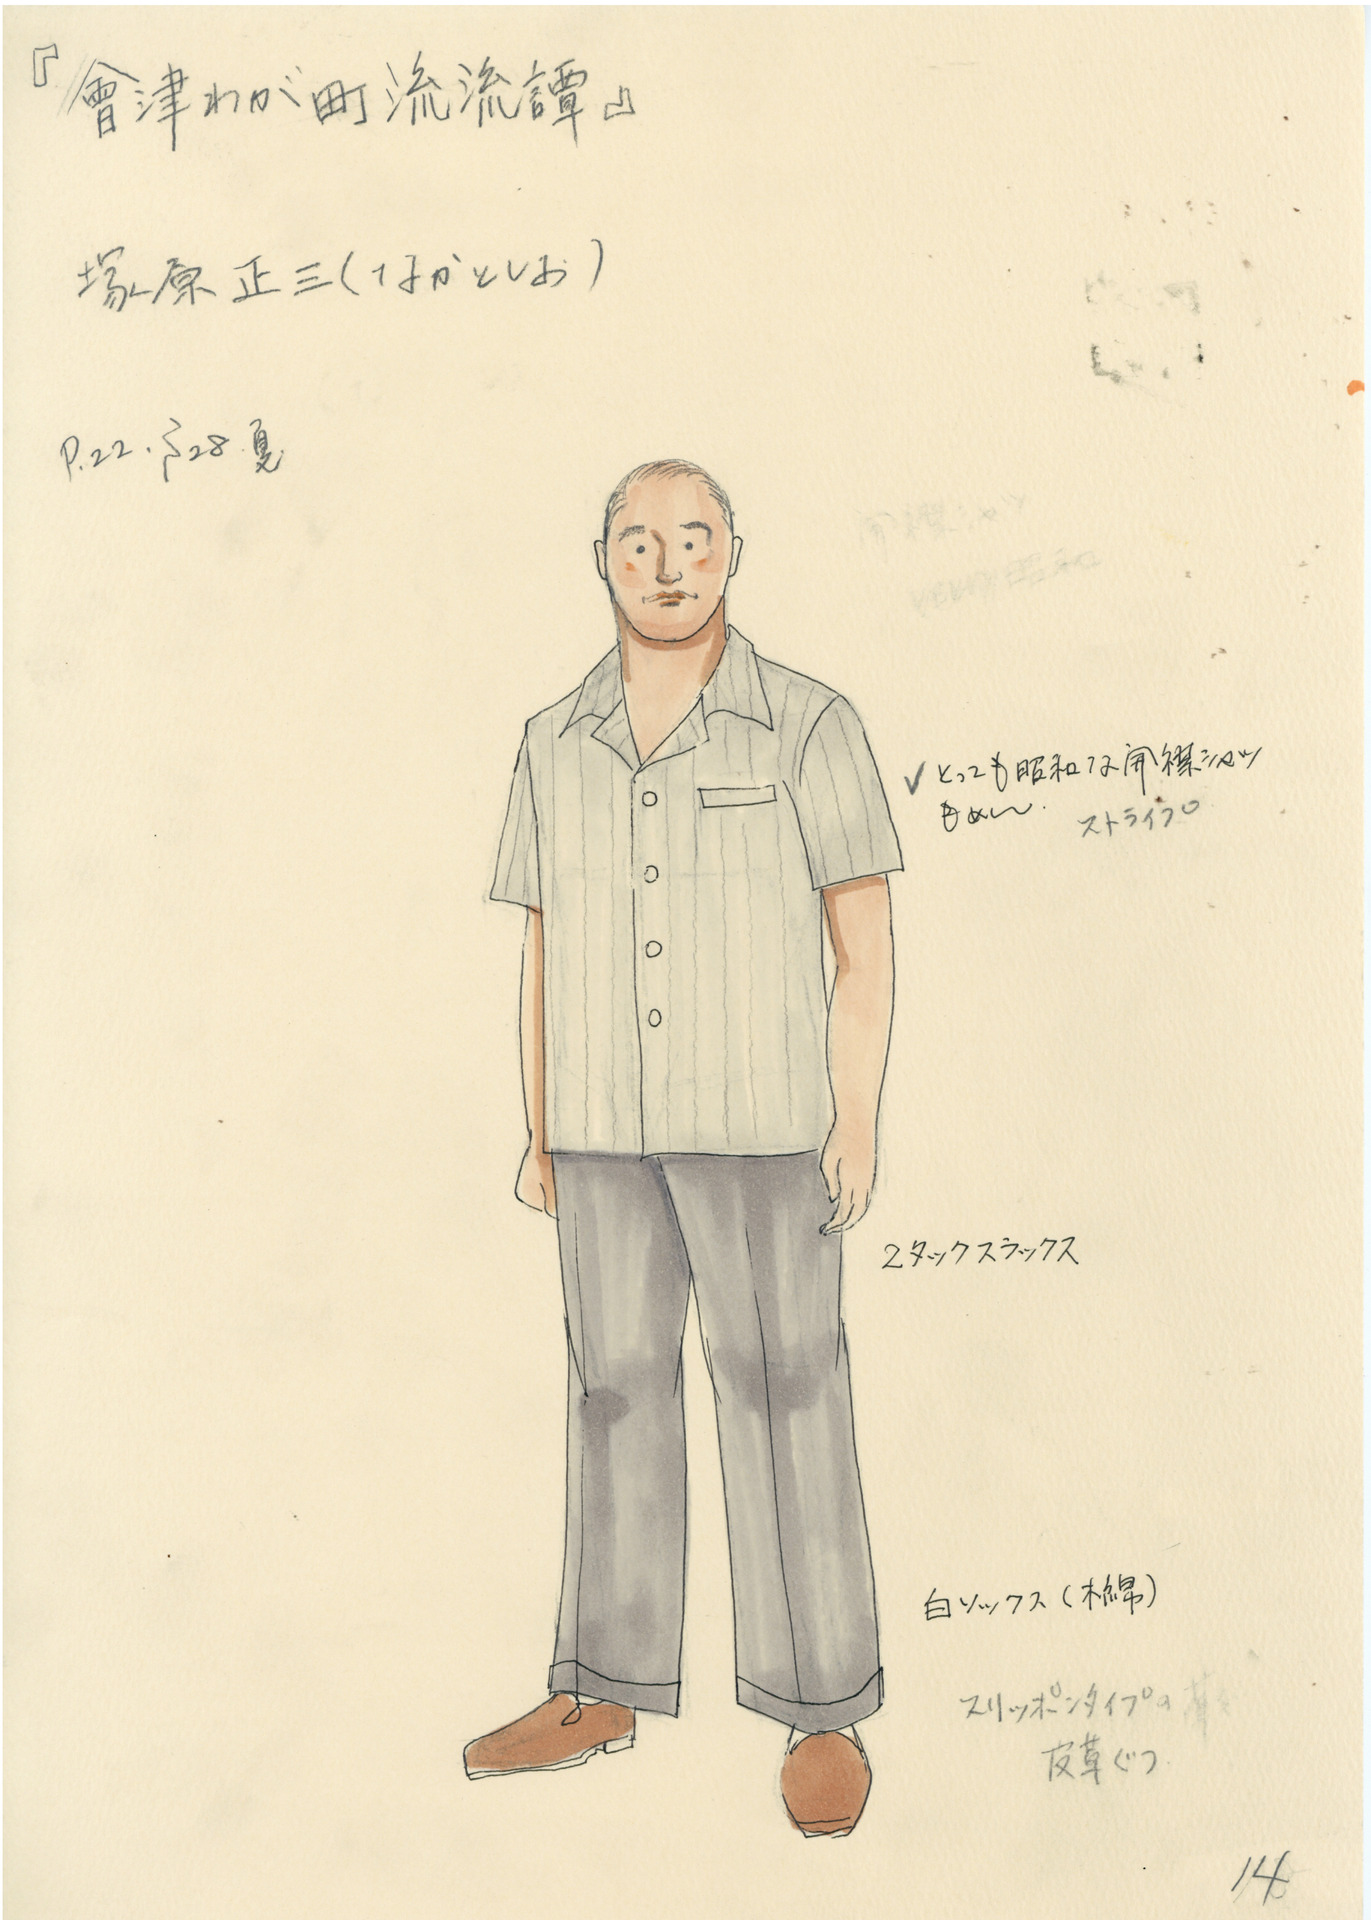 『會津わが町流流譚』
塚原正三(なかとしお)
P.22. S28 夏
✓とっても昭和な開襟シャツ
もめん.
ストライプ
2タックスラックス
白ソックス(木綿)
スリッポンタイプの
皮革ぐつ
14